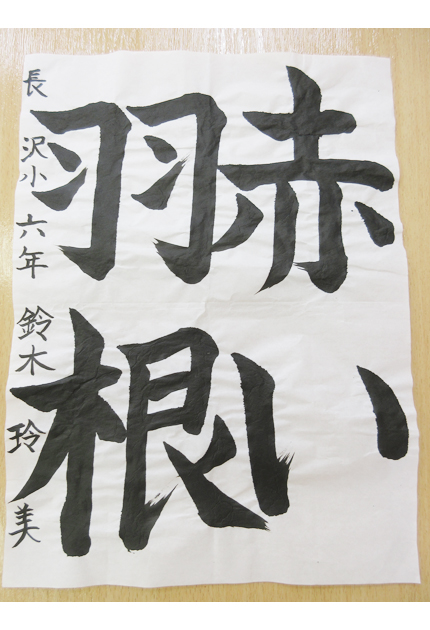 赤い
羽根
長沢小六年 鈴木玲美